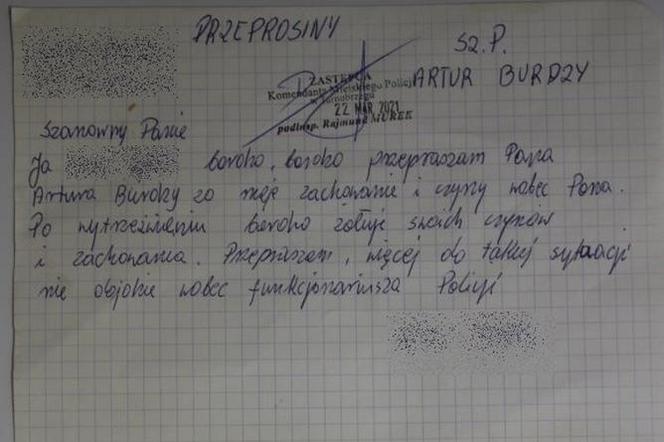 PRZEPROSINY
SZ.P.
ARTUR BURDZY
ZASTĘPCA
Komendanta Miejskiego Policji
w Tarnobrzegu
22 MAR. 2021
podinsp. Rajmund MUREK
Szanowny Panie
Ja bardzo, bardzo przepraszam Pana
Artura Burdzy za moje zachowanie i czyny wobec Pana.
Po wytrzeźwieniu bardzo żałuje swoich czynów
i zachowania. Przepraszam, więcej do takiej sytuacji
nie dojdzie wobec funkcjonariusza Policji